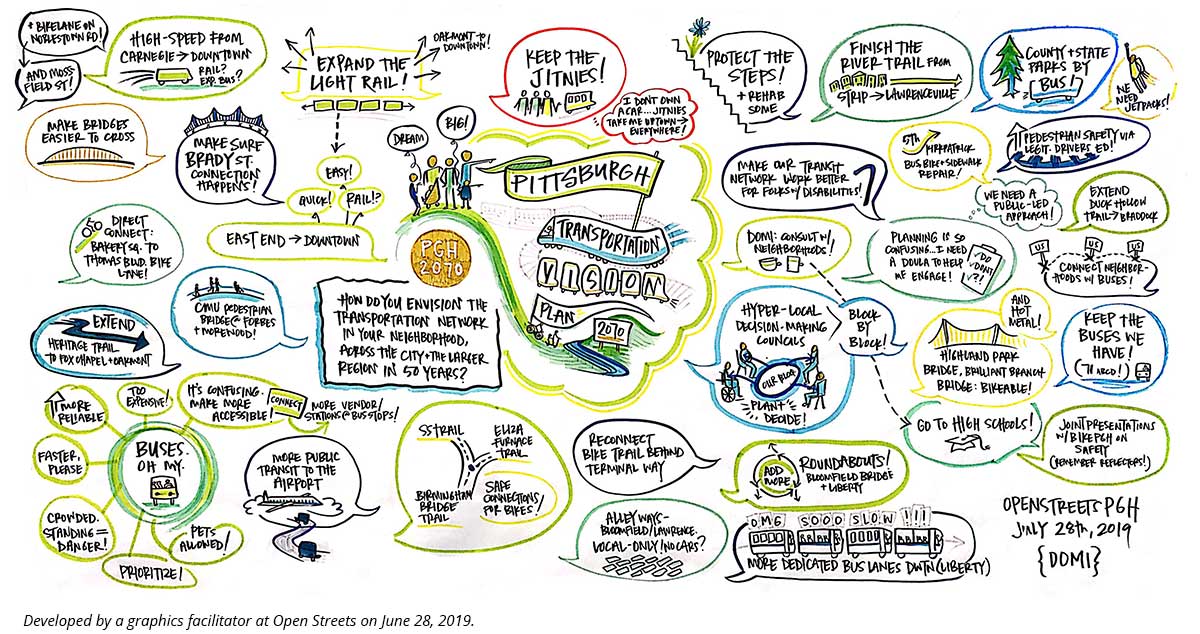 + BIKELANE ON
NOBLESTOWN RD!
AND MOSS
FIELD ST!
HIGH-SPEED FROM
CARNEGIE → DOWNTOWN
RAIL?
EXP. BUS?
EXPAND THE
LIGHT RAIL!
OAKMONT TO
DOWNTOWN!
KEEP THE
JITNIES!
I DON'T OWN
A CAR... JITNIES
TAKE ME UPTOWN →
EVERYWHERE!
PROTECT THE
STEPS!
+ REHAB
SOME
FINISH THE
RIVER TRAIL FROM
STRIP → LAWRENCEVILLE
COUNTY + STATE
PARKS BY
BUS!
WE
NEED
JETPACKS!
MAKE BRIDGES
EASIER TO CROSS
MAKE SURE
BRADY ST.
CONNECTION
HAPPENS!
EASY!
QUICK!
RAIL!?
EAST END → DOWNTOWN
DREAM
BIG!
PGH
2070
PITTSBURGH
TRANSPORTATION
VISION
PLAN
2070
HOW DO YOU ENVISION THE
TRANSPORTATION NETWORK
IN YOUR NEIGHBORHOOD,
ACROSS THE CITY + THE LARGER
REGION IN 50 YEARS?
MAKE OUR TRANSIT
NETWORK WORK BETTER
FOR FOLKS W/ DISABILITIES!
5TH
KIRKPATRICK
BUS BIKE + SIDEWALK
REPAIR!
PEDESTRIAN SAFETY VIA
LEGIT. DRIVERS ED!
WE NEED A
PUBLIC-LED
APPROACH!
EXTEND
DUCK HOLLOW
TRAIL → BRADDOCK
DIRECT
CONNECT:
BAKERY SQ. TO
THOMAS BLVD. BIKE
LANE!
CMU PEDESTRIAN
BRIDGE @ FORBES
+ MOREWOOD!
EXTEND
HERITAGE TRAIL
TO FOX CHAPEL + OAKMONT
DOMI: CONSULT W/
NEIGHBORHOODS!
PLANNING IS SO
CONFUSING. I NEED
A DOULA TO HELP
ME ENGAGE!
DO
DON'T
?
US
US
US
CONNECT NEIGHBOR-
HOODS W/ BUSES!
HYPER-LOCAL
DECISION-MAKING
COUNCILS
OUR BLOCK
PLAN +
DECIDE!
BLOCK
BY
BLOCK!
AND
HOT
METAL!
HIGHLAND PARK
BRIDGE, BRILLIANT BRANCH
BRIDGE: BIKEABLE!
KEEP THE
BUSES WE
HAVE!
GO TO HIGH SCHOOLS!
JOINT PRESENTATIONS
W/ BIKEPGH ON
SAFETY
(REMEMBER REFLECTORS!)
MORE
RELIABLE
TOO
EXPENSIVE!
IT'S CONFUSING.
MAKE MORE
ACCESSIBLE!
CONNECT
MORE VENDOR/
STATIONS @ BUS STOPS!
FASTER,
PLEASE
BUSES.
OH MY.
CROWDED.
STANDING =
DANGER!
PETS
ALLOWED!
PRIORITIZE!
MORE PUBLIC
TRANSIT TO THE
AIRPORT
SS TRAIL
ELIZA
FURNACE
TRAIL
BIRMINGHAM
BRIDGE
TRAIL
SAFE
CONNECTIONS
FOR BIKES!
RECONNECT
BIKE TRAIL BEHIND
TERMINAL WAY
ADD
MORE
ROUNDABOUTS!
BLOOMFIELD BRIDGE
+ LIBERTY
ALLEY WAYS-
BLOOMFIELD/LAWRENCE.
LOCAL-ONLY! NO CARS?
OMG SOOO SLOW !!!
MORE DEDICATED BUS LANES DWTN (LIBERTY)
OPENSTREETS PGH
JULY 28TH, 2019
{DOMI}
Developed by a graphics facilitator at Open Streets on June 28, 2019.